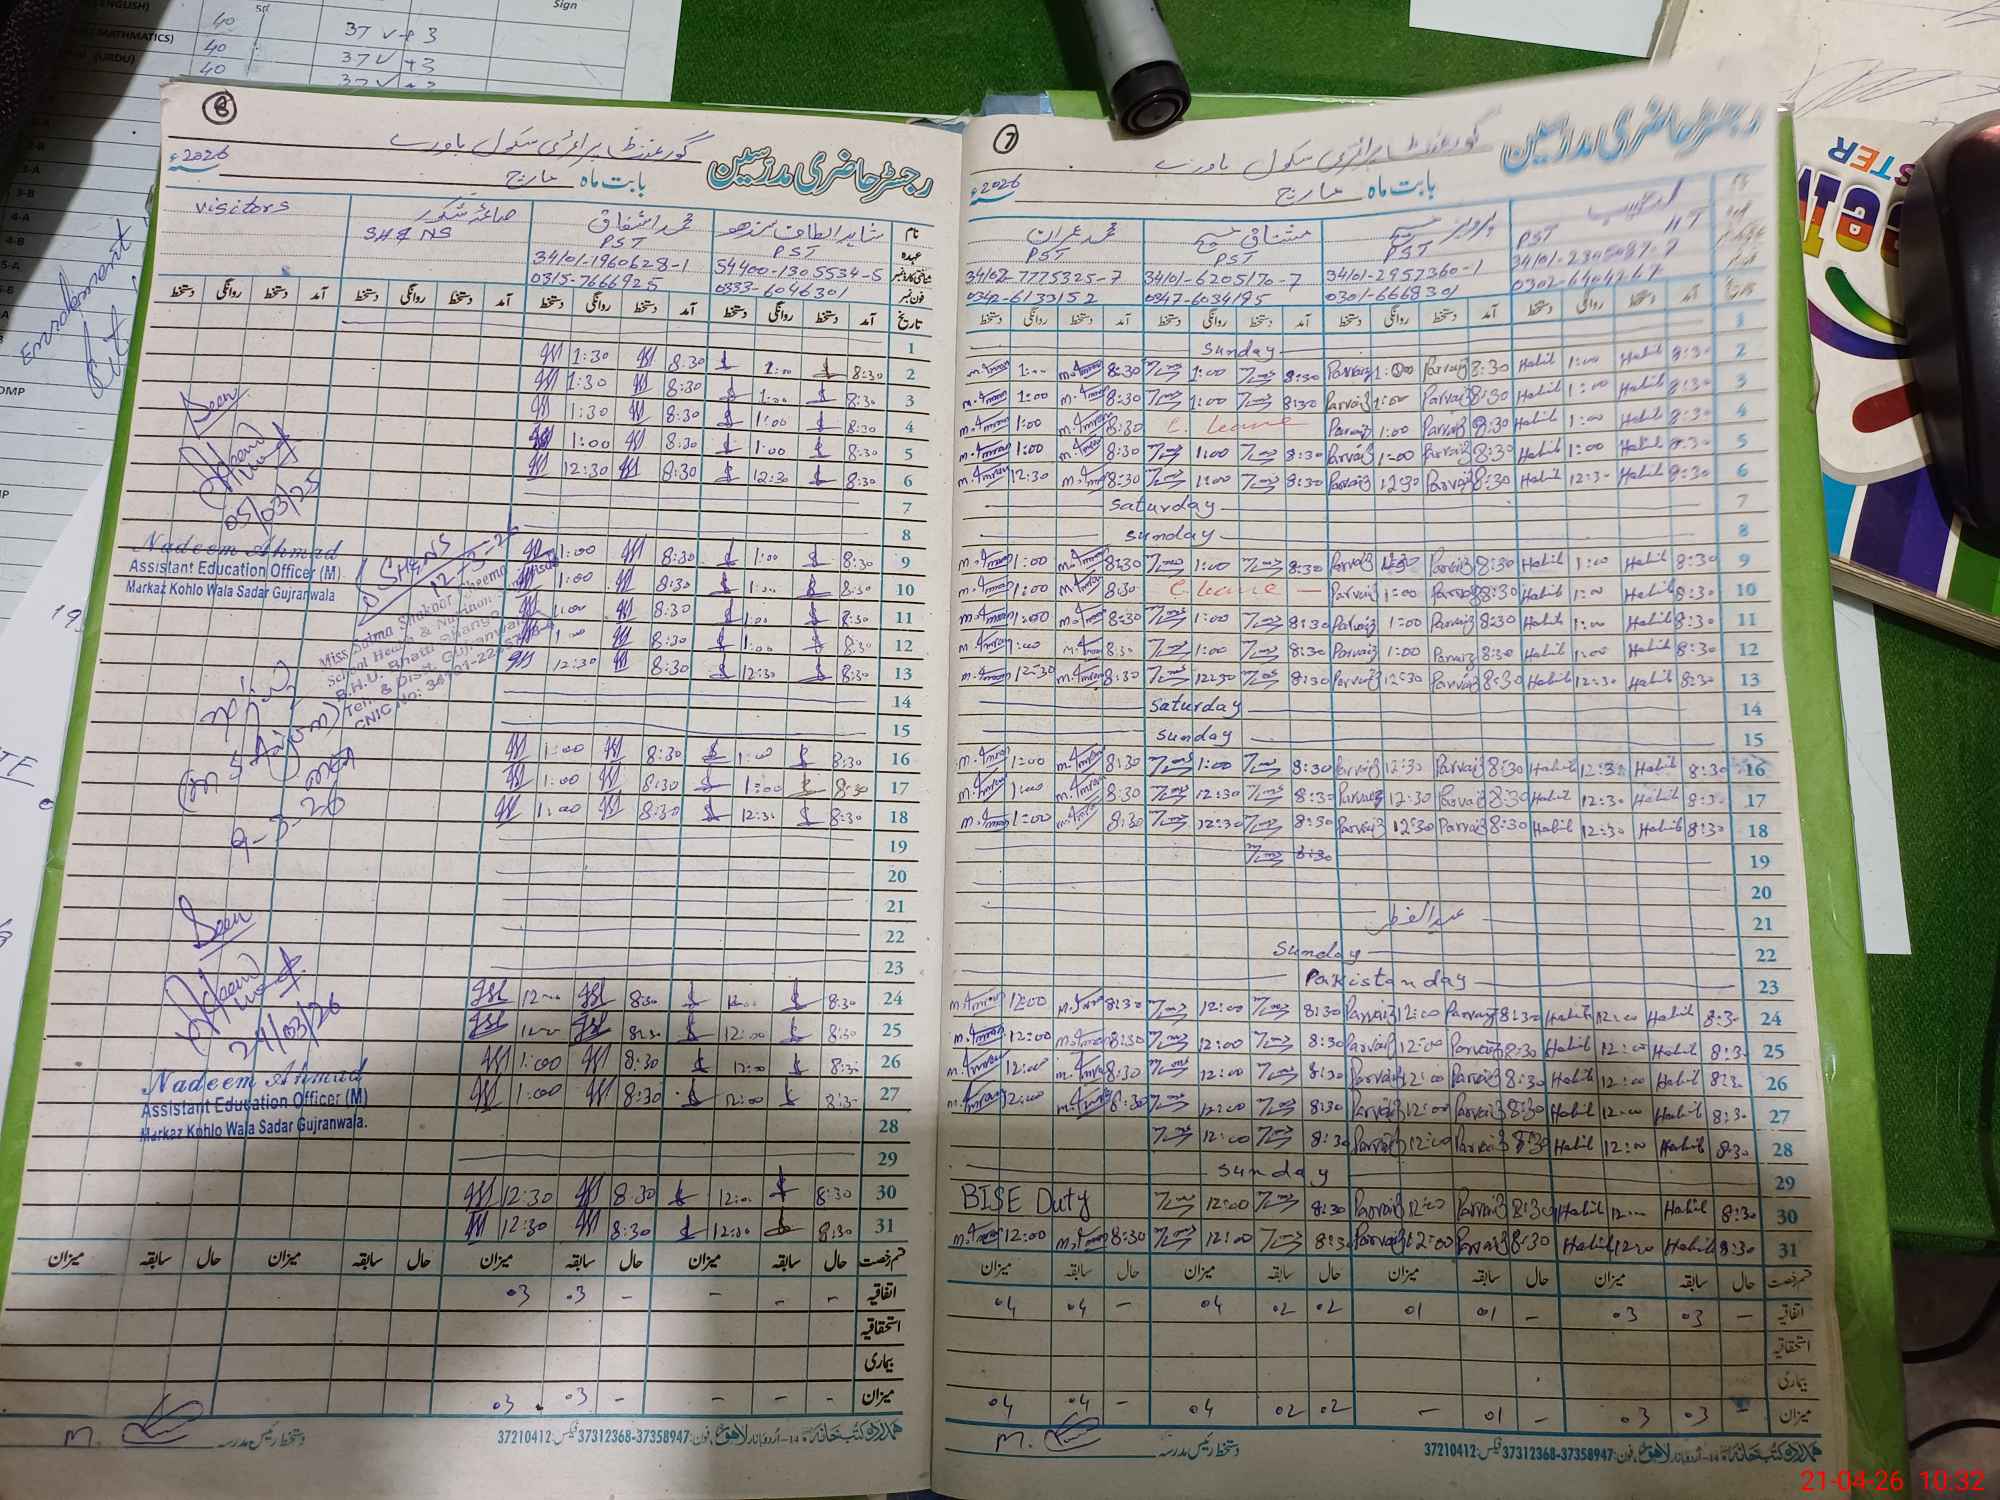 (ENGLISH)
Sign
40
37 ✓ + 3
MATHMATICS)
40
37 ✓ +3
(URDU)
40
Enrolement
8
رجسٹر حاضری مدرسین
گورنمنٹ پرائمری سکول باورے
بابت ماہ مارچ
سنہ 2026ء
نام
عہدہ
شناختی کارڈ نمبر
فون نمبر
شاہد الطاف سندھو
PST
54400-1305534-5
0333-6046301
محمد اشفاق
PST
34101-1960628-1
0315-7666925
صائمہ شکور
SH&NS
visitors
تاریخ آمد دستخط روانگی دستخط آمد دستخط روانگی دستخط آمد دستخط روانگی دستخط آمد دستخط روانگی دستخط
1
2 8:30 1:00 8:30 1:30
3 8:30 1:00 8:30 1:30
4 8:30 1:00 8:30 1:30
5 8:30 1:00 8:30 1:00
6 8:30 12:30 8:30 12:30
7
8
9 8:30 1:00 8:30 1:00
10 8:30 1:00 8:30 1:00
11 8:30 1:00 8:30 1:00
12 8:30 1:00 8:30 1:00
13 8:30 12:30 8:30 12:30
14
15
16 8:30 1:00 8:30 1:00
17 8:30 1:00 8:30 1:00
18 8:30 12:30 8:30 1:00
19
20
21
22
23
24 8:30 12:00 8:30 12:00
25 8:30 12:00 8:30 12:00
26 8:30 12:00 8:30 1:00
27 8:30 12:00 8:30 1:00
28
29
30 8:30 12:00 8:30 12:30
31 8:30 12:00 8:30 12:30
Seen
05/03/25
Nadeem Ahmad
Assistant Education Officer (M)
Markaz Kohlo Wala Sadar Gujranwala
SH&NS
Miss Saima Shakoor Cheema
School Health & Nutrition Supervisor
B.H.U. Bhatti Bhango
Teh & Distt. Gujranwala
(M S Anjum)
MEA
9-3-26
Seen
24/03/26
Nadeem Ahmad
Assistant Education Officer (M)
Markaz Kohlo Wala Sadar Gujranwala.
قسم رخصت حال سابقہ میزان حال سابقہ میزان حال سابقہ میزان حال سابقہ میزان
اتفاقیہ - - - - 03 03
استحقاقیہ
بیماری
میزان - - - - 03 03
دستخط رئیس مدرسہ
ہمدرد کتب خانہ 14-اردو بازار لاہور، فون: 37358947-37312368 فیکس: 37210412
7
رجسٹر حاضری مدرسین
گورنمنٹ پرائمری سکول باورے
بابت ماہ مارچ
سنہ 2026ء
PST HT
پرویز مسیح
PST
34101-2957360-1
0301-6668301
مشتاق مسیح
PST
34101-6205170-7
0347-6034195
محمد عمران
PST
34102-7775325-7
0342-6133152
آمد دستخط روانگی دستخط آمد دستخط روانگی دستخط آمد دستخط روانگی دستخط آمد دستخط روانگی دستخط
1 Sunday
2 8:30 Habib 1:00 Habib 8:30 Parvaiz 1:00 Parvaiz 8:30 1:00 8:30 M.Imran 1:00 M.Imran
3 8:30 Habib 1:00 Habib 8:30 Parvaiz 1:00 Parvaiz 8:30 1:00 8:30 M.Imran 1:00 M.Imran
4 8:30 Habib 1:00 Habib 8:30 Parvaiz 1:00 Parvaiz C. leave 8:30 M.Imran 1:00 M.Imran
5 8:30 Habib 1:00 Habib 8:30 Parvaiz 1:00 Parvaiz 8:30 1:00 8:30 M.Imran 1:00 M.Imran
6 8:30 Habib 12:30 Habib 8:30 Parvaiz 12:30 Parvaiz 8:30 1:00 8:30 M.Imran 12:30 M.Imran
7 Saturday
8 Sunday
9 8:30 Habib 1:00 Habib 8:30 Parvaiz Parvaiz 8:30 1:00 8:30 M.Imran 1:00 M.Imran
10 8:30 Habib 1:00 Habib 8:30 Parvaiz 1:00 Parvaiz C. leave 8:30 M.Imran 1:00 M.Imran
11 8:30 Habib 1:00 Habib 8:30 Parvaiz 1:00 Parvaiz 8:30 1:00 8:30 M.Imran 1:00 M.Imran
12 8:30 Habib 1:00 Habib 8:30 Parvaiz 1:00 Parvaiz 8:30 1:00 8:30 M.Imran 1:00 M.Imran
13 8:30 Habib 12:30 Habib 8:30 Parvaiz 12:30 Parvaiz 8:30 12:30 8:30 M.Imran 12:30 M.Imran
14 Saturday
15 Sunday
16 8:30 Habib 12:30 Habib 8:30 Parvaiz 12:30 Parvaiz 8:30 1:00 8:30 M.Imran 1:00 M.Imran
17 8:30 Habib 12:30 Habib 8:30 Parvaiz 12:30 Parvaiz 8:30 12:30 8:30 M.Imran 1:00 M.Imran
18 8:30 Habib 12:30 Habib 8:30 Parvaiz 12:30 Parvaiz 8:30 12:30 8:30 M.Imran 1:00 M.Imran
19 8:30
20
21 عید الفطر
22 Sunday
23 Pakistan day
24 8:30 Habib 12:00 Habib 8:30 Parvaiz 12:00 Parvaiz 8:30 12:00 8:30 M.Imran 12:00 M.Imran
25 8:30 Habib 12:00 Habib 8:30 Parvaiz 12:00 Parvaiz 8:30 12:00 8:30 M.Imran 12:00 M.Imran
26 8:30 Habib 12:00 Habib 8:30 Parvaiz 12:00 Parvaiz 8:30 12:00 8:30 M.Imran 12:00 M.Imran
27 8:30 Habib 12:00 Habib 8:30 Parvaiz 12:00 Parvaiz 8:30 12:00 8:30 M.Imran 12:00 M.Imran
28 8:30 Habib 12:00 Habib 8:30 Parvaiz 12:00 Parvaiz 8:30 12:00
29 Sunday
30 8:30 Habib 12:00 Habib 8:30 Parvaiz 12:00 Parvaiz 8:30 12:00 BISE Duty
31 8:30 Habib 12:00 Habib 8:30 Parvaiz 12:00 Parvaiz 8:30 12:00 8:30 M.Imran 12:00 M.Imran
قسم رخصت حال سابقہ میزان حال سابقہ میزان حال سابقہ میزان حال سابقہ میزان
اتفاقیہ - 03 03 - 01 01 02 02 04 - 04 04
استحقاقیہ
بیماری
میزان - 03 03 - 01 - 02 02 04 - 04 04
دستخط رئیس مدرسہ
ہمدرد کتب خانہ 14-اردو بازار لاہور، فون: 37358947-37312368 فیکس: 37210412
21-04-26 10:32